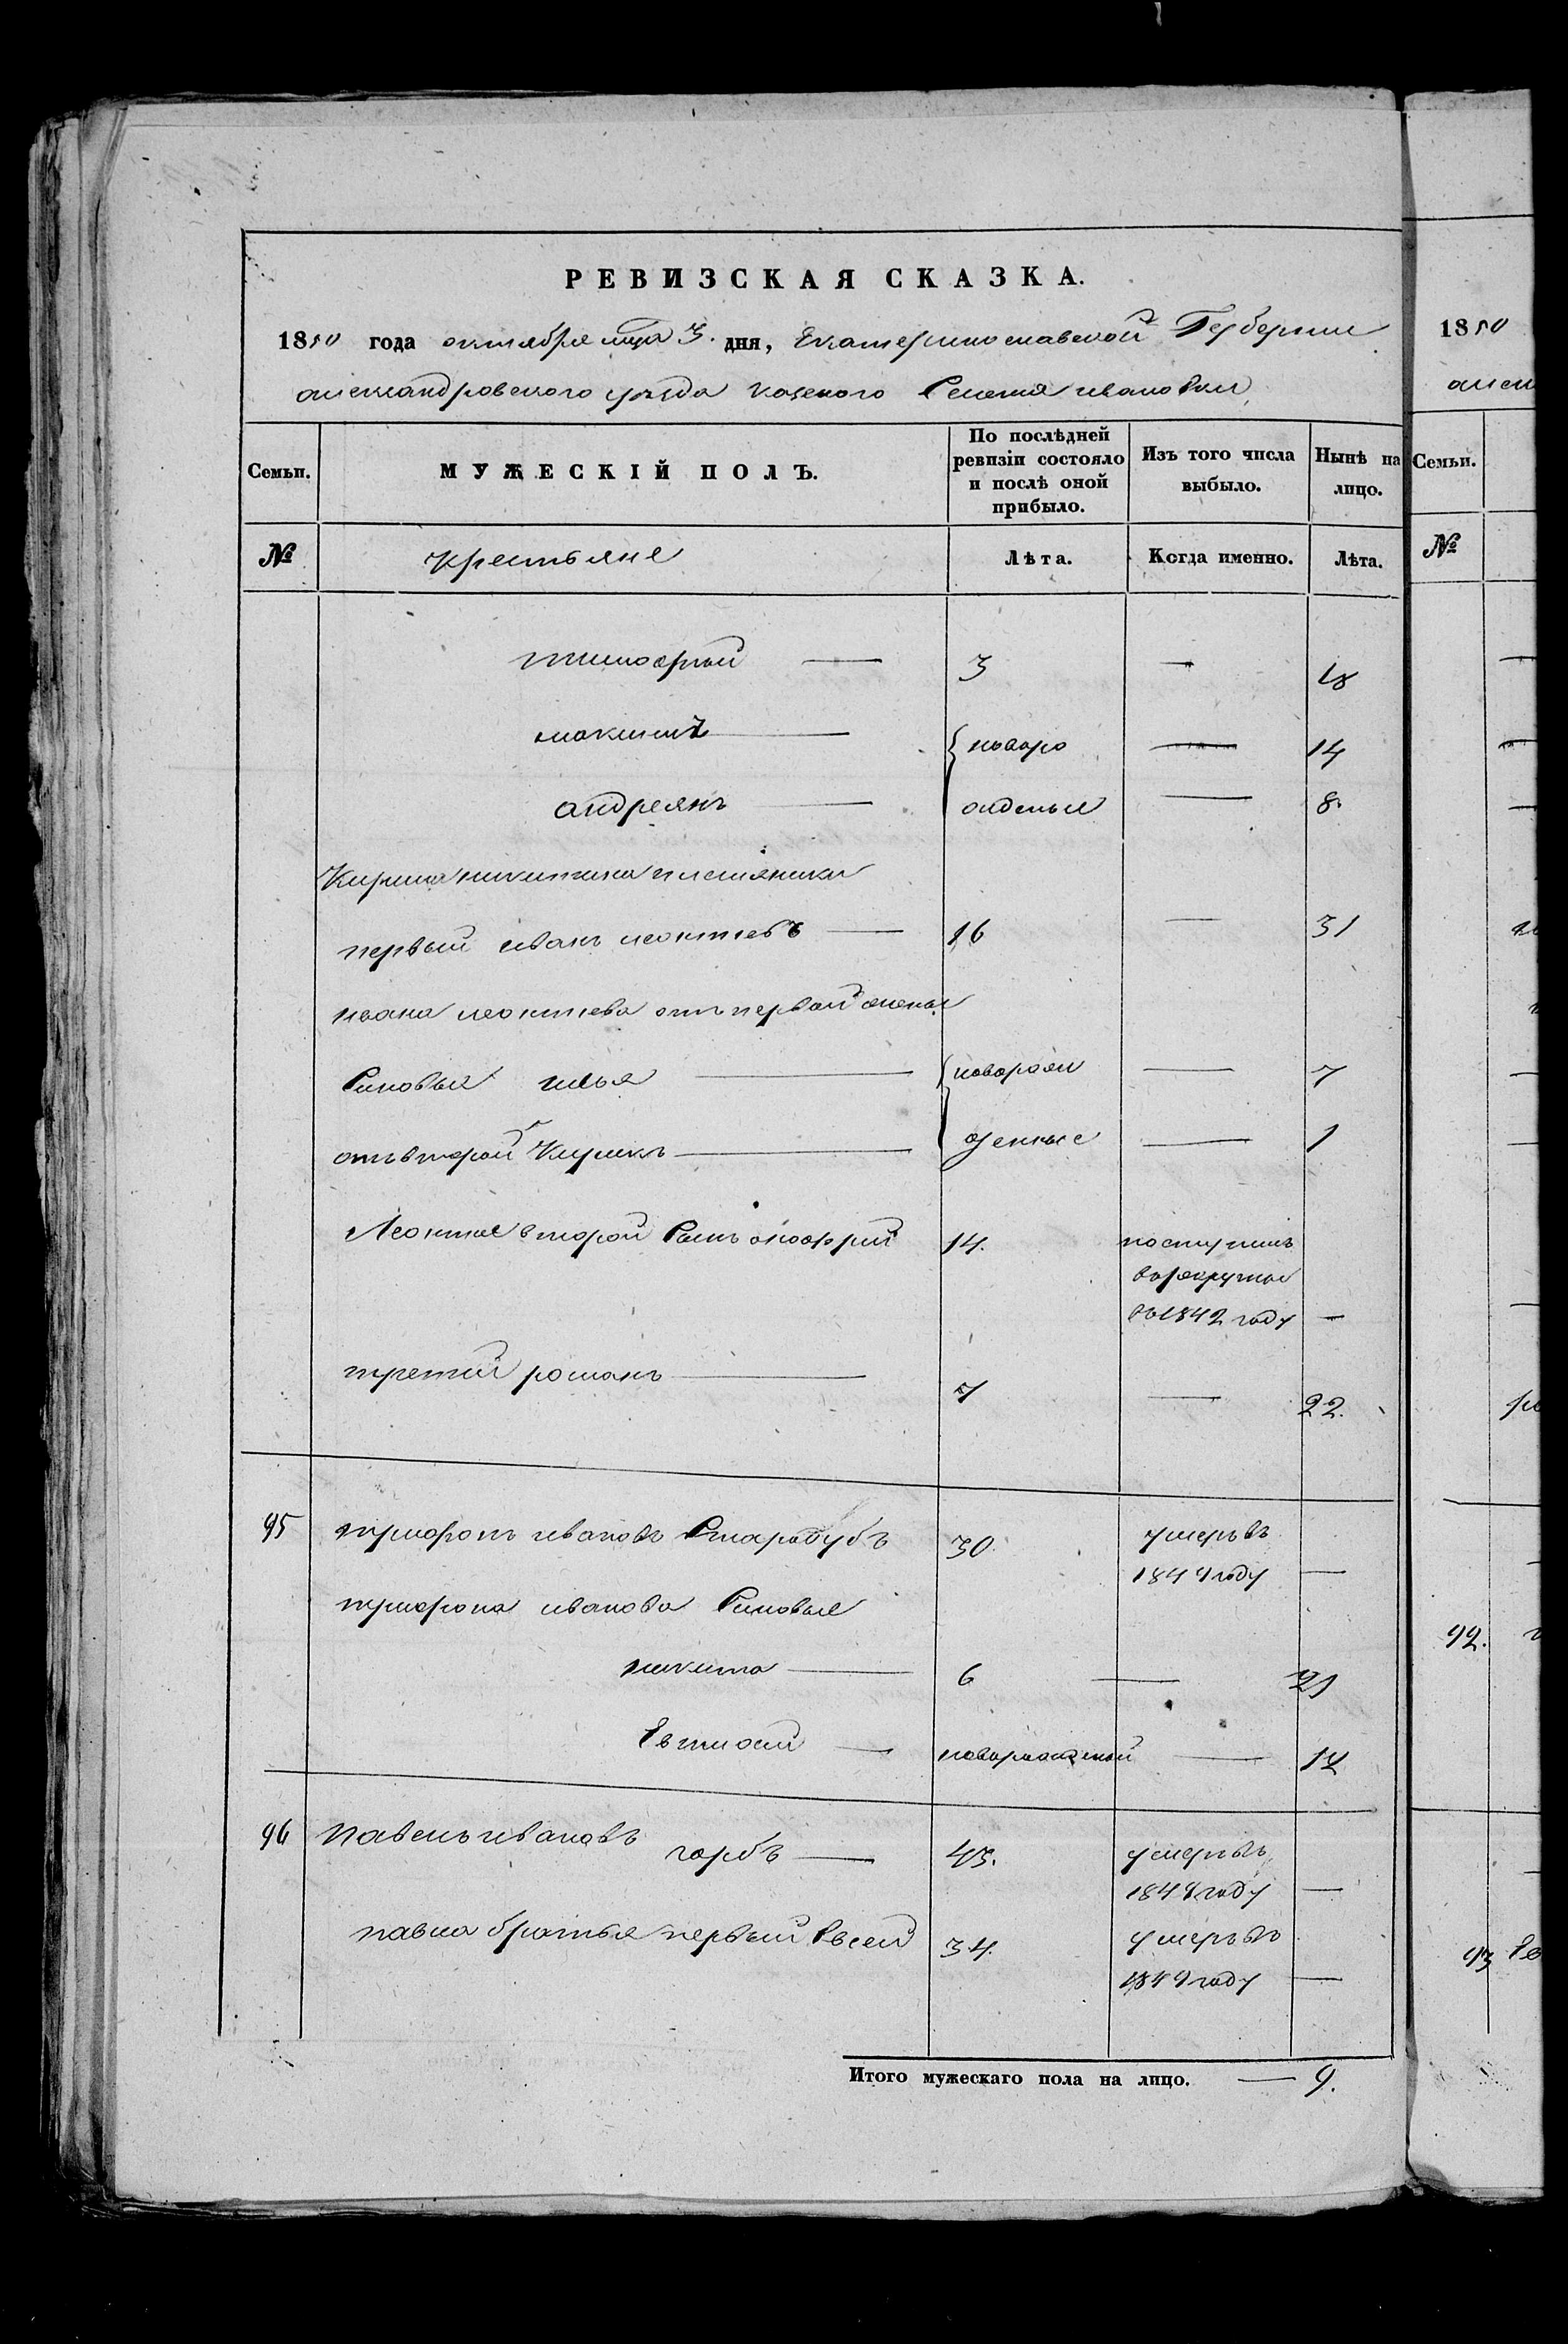 РЕВИЗСКАЯ СКАЗКА.
1850 года октября мца 3. дня, Екатеринославской Губернии
александровского уезда казеного Селения ивановки
Семьи. МУЖЕСКІЙ ПОЛЪ. По послѣдней ревизіи состояло и послѣ оной прибыло. Изъ того числа выбыло. Нынѣ на лицо.
№ крестьяне Лѣта. Когда именно. Лѣта.
тимофей — 3 — 18
максимъ — новоро — 14
андреянъ — жденые — 8.
Кирила никитина племяники
первый иванъ леонтиевъ — 16 — 31
ивана леонтиева отъ первой жены
Сыновья илья — новорож — 7
отъ второй Кирикъ — денные — 1
Леонтия второй Сынъ онофрий 14. поступилъ
в рекруты
въ 1842 году —
третий романъ — 7 — 22.
95 трифонъ ивановъ Стародубъ 30 умеръ въ
1849 году —
трифона иванова Сыновья
никита — 6 — 21
Евтихий — новорожденый — 12
96 Павелъ ивановъ
горбъ — 45. умеръ въ
1848 году —
павла братья первый Евсей 34. умеръ въ
1849 году —
Итого мужескаго пола на лицо. — 9.
1850
Семьи.
№
92.
93